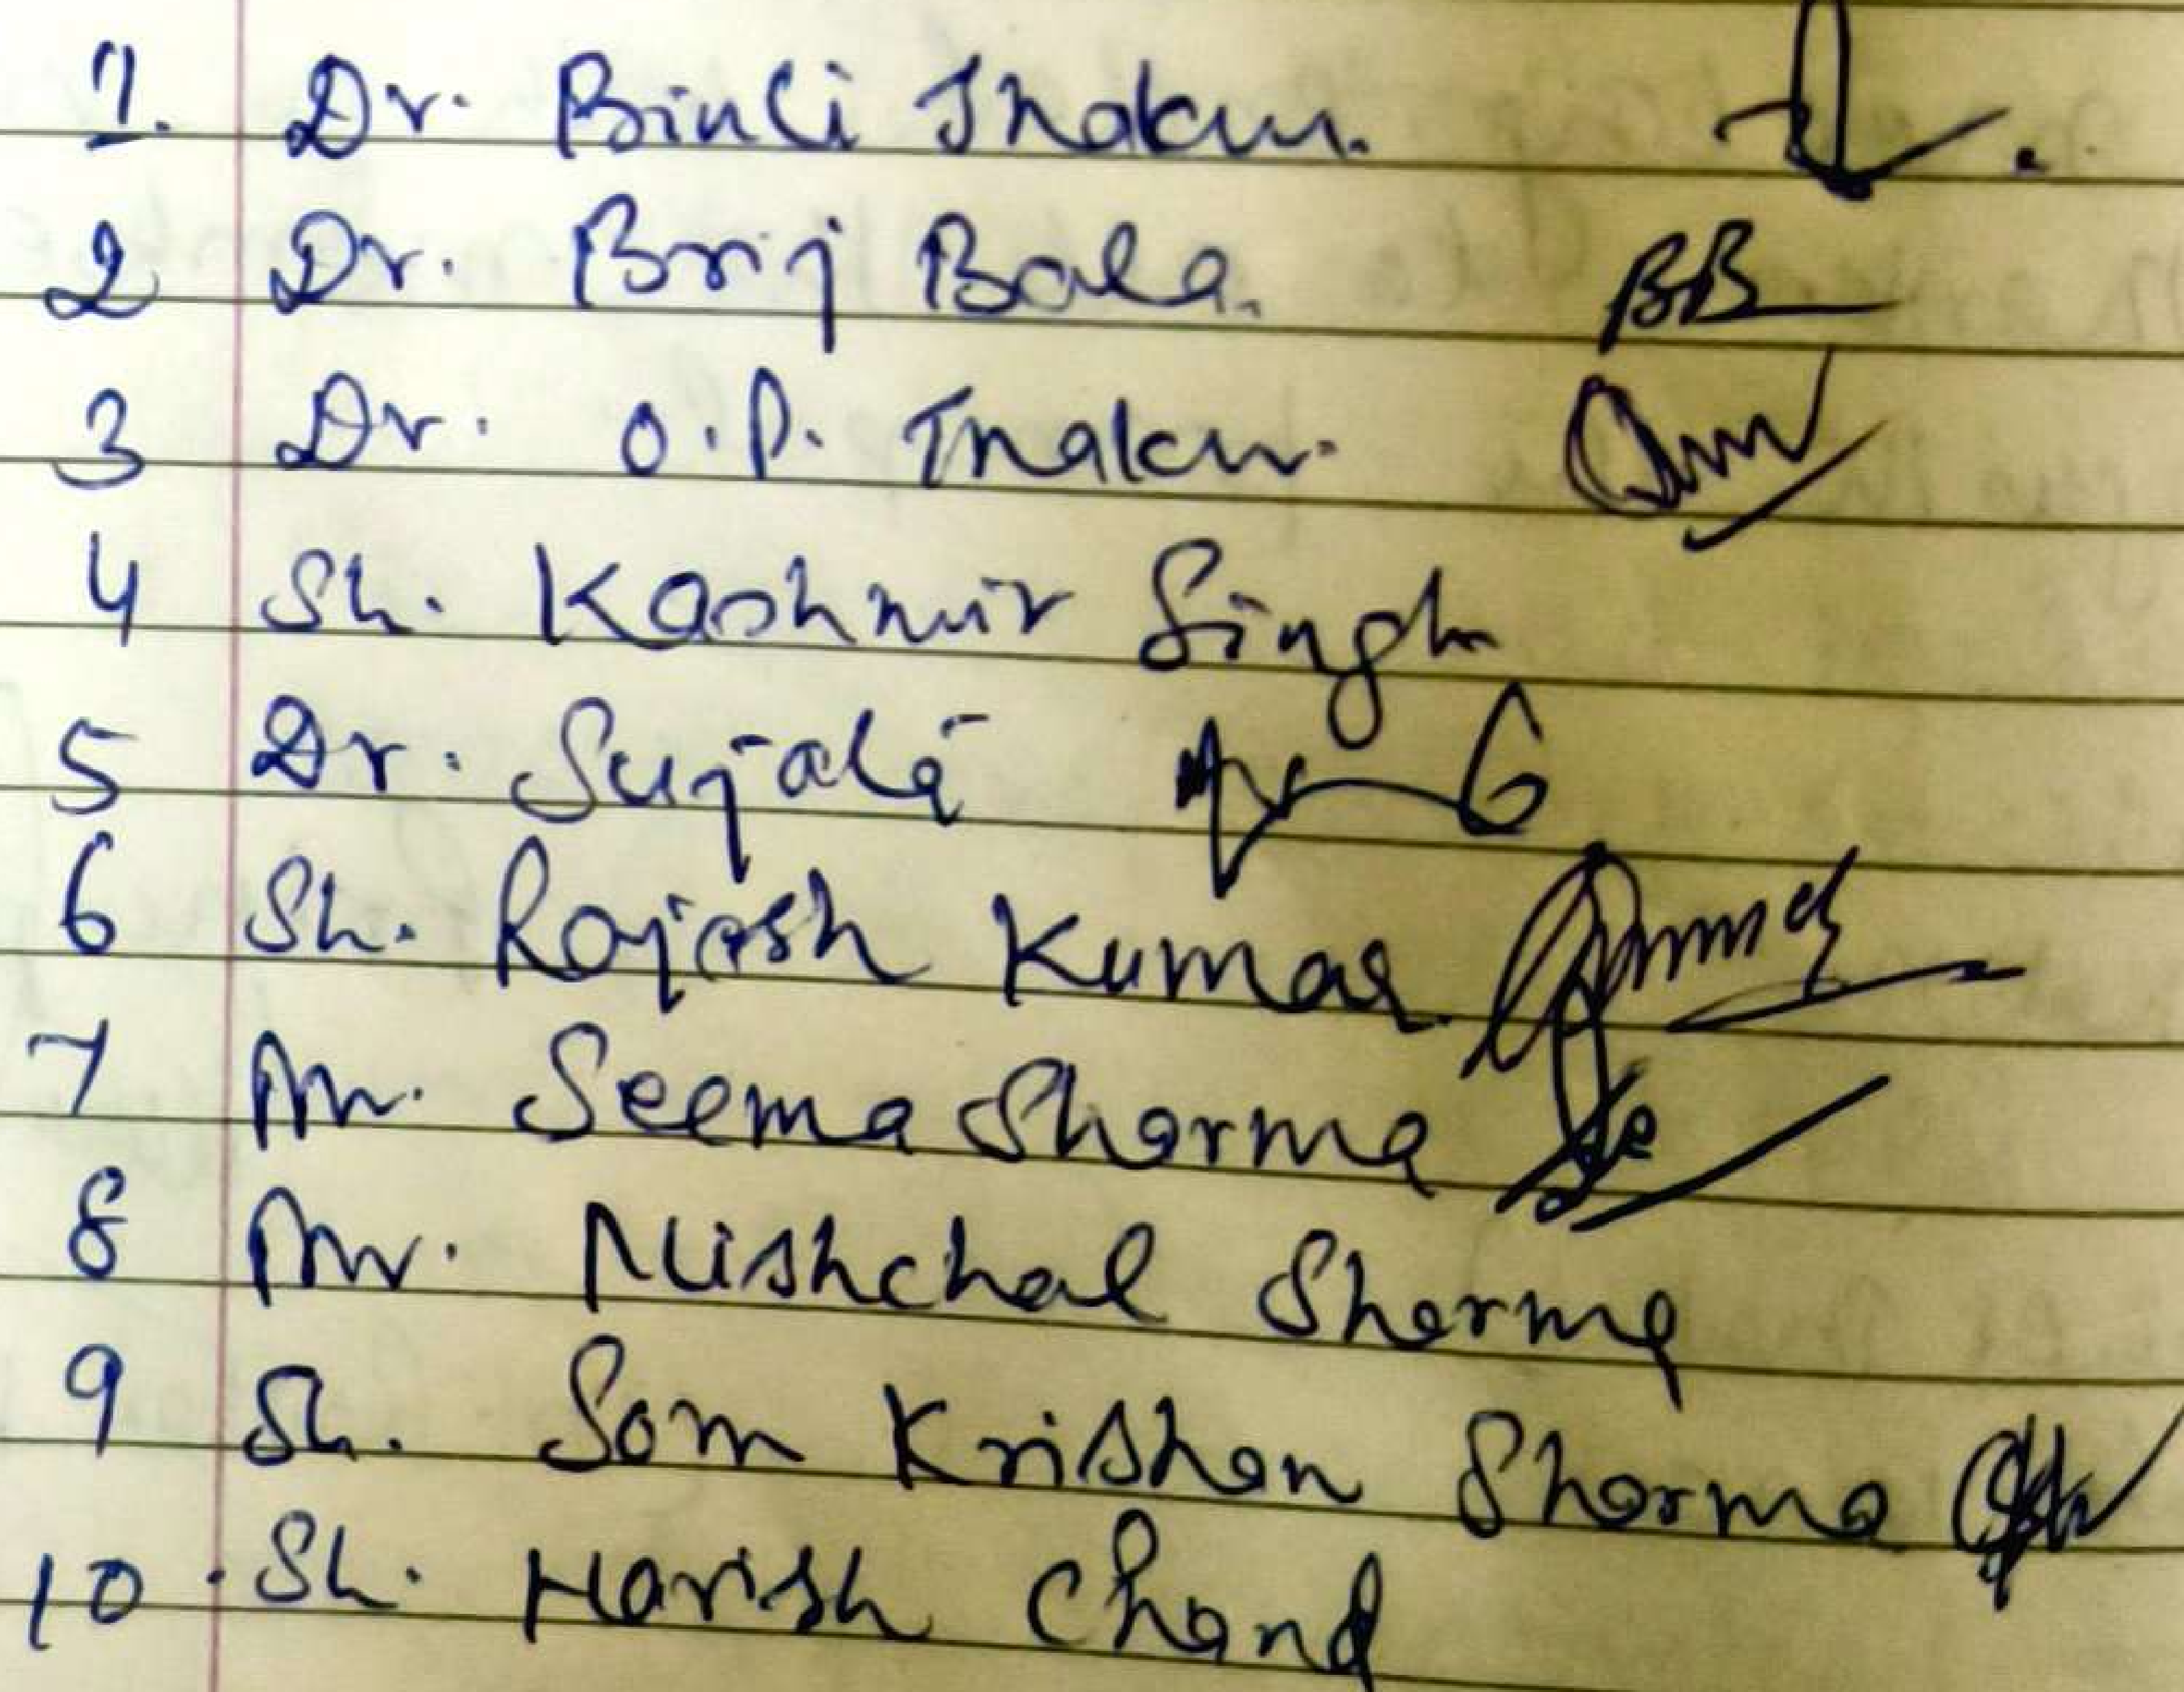 1. Dr. Binti Thakur.
2 Dr. Brij Bala. BB
3 Dr. O.P. Thakur.
4 Sh. Kashmir Singh
5 Dr. Sujata
6 Sh. Rajesh Kumar.
7 Mr. Seema Sharma
8 Mr. Nishchal Sharma
9 Sh. Som Krishan Sharma
10. Sh. Harish Chand